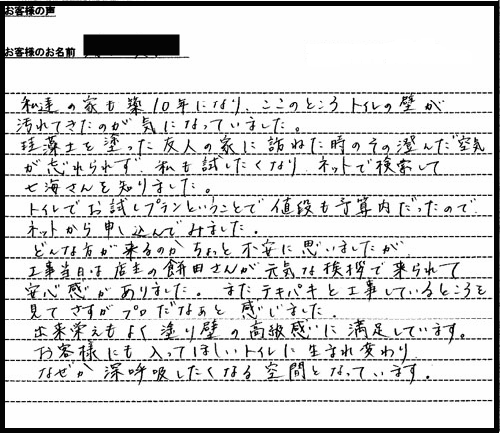 お客様の声
お客様のお名前
私達の家も築10年になり、ここのところトイレの壁が
汚れてきたのが気になっていました。
珪藻土を塗った友人の家に訪ねた時のその澄んだ空気
が忘れられず、私も試したくなり、ネットで検索して
七海さんを知りました。
トイレでお試しプランということで値段も予算内だったので
ネットから申し込んでみました。
どんな方が来るのかちょっと不安に思いましたが、
工事当日は店主の餅田さんが元気な挨拶で来られて
安心感がありました。またテキパキと工事しているところを
見てさすがプロだなぁと感じました。
出来栄えもよく塗り壁の高級感に満足しています。
お客様にも入ってほしいトイレに生まれ変わり
なぜか深呼吸したくなる空間となっています。